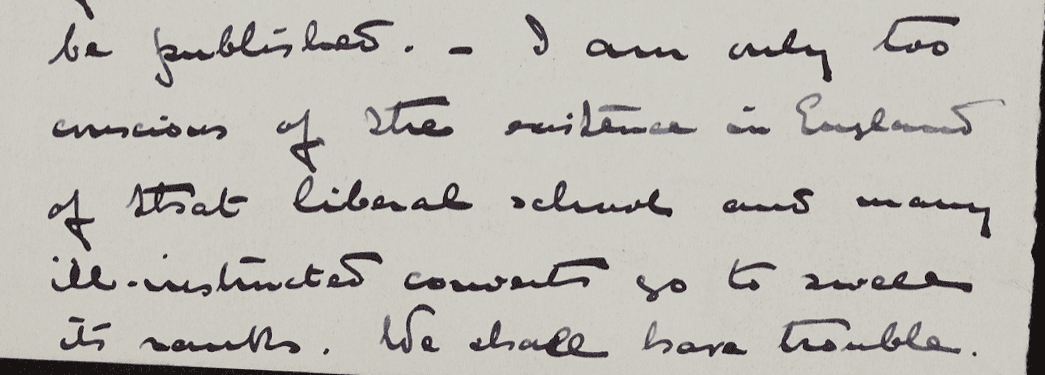 be published. – I am only too
conscious of the existence in England
of that liberal school and many
ill-instructed converts go to swell
its ranks. We shall have trouble.